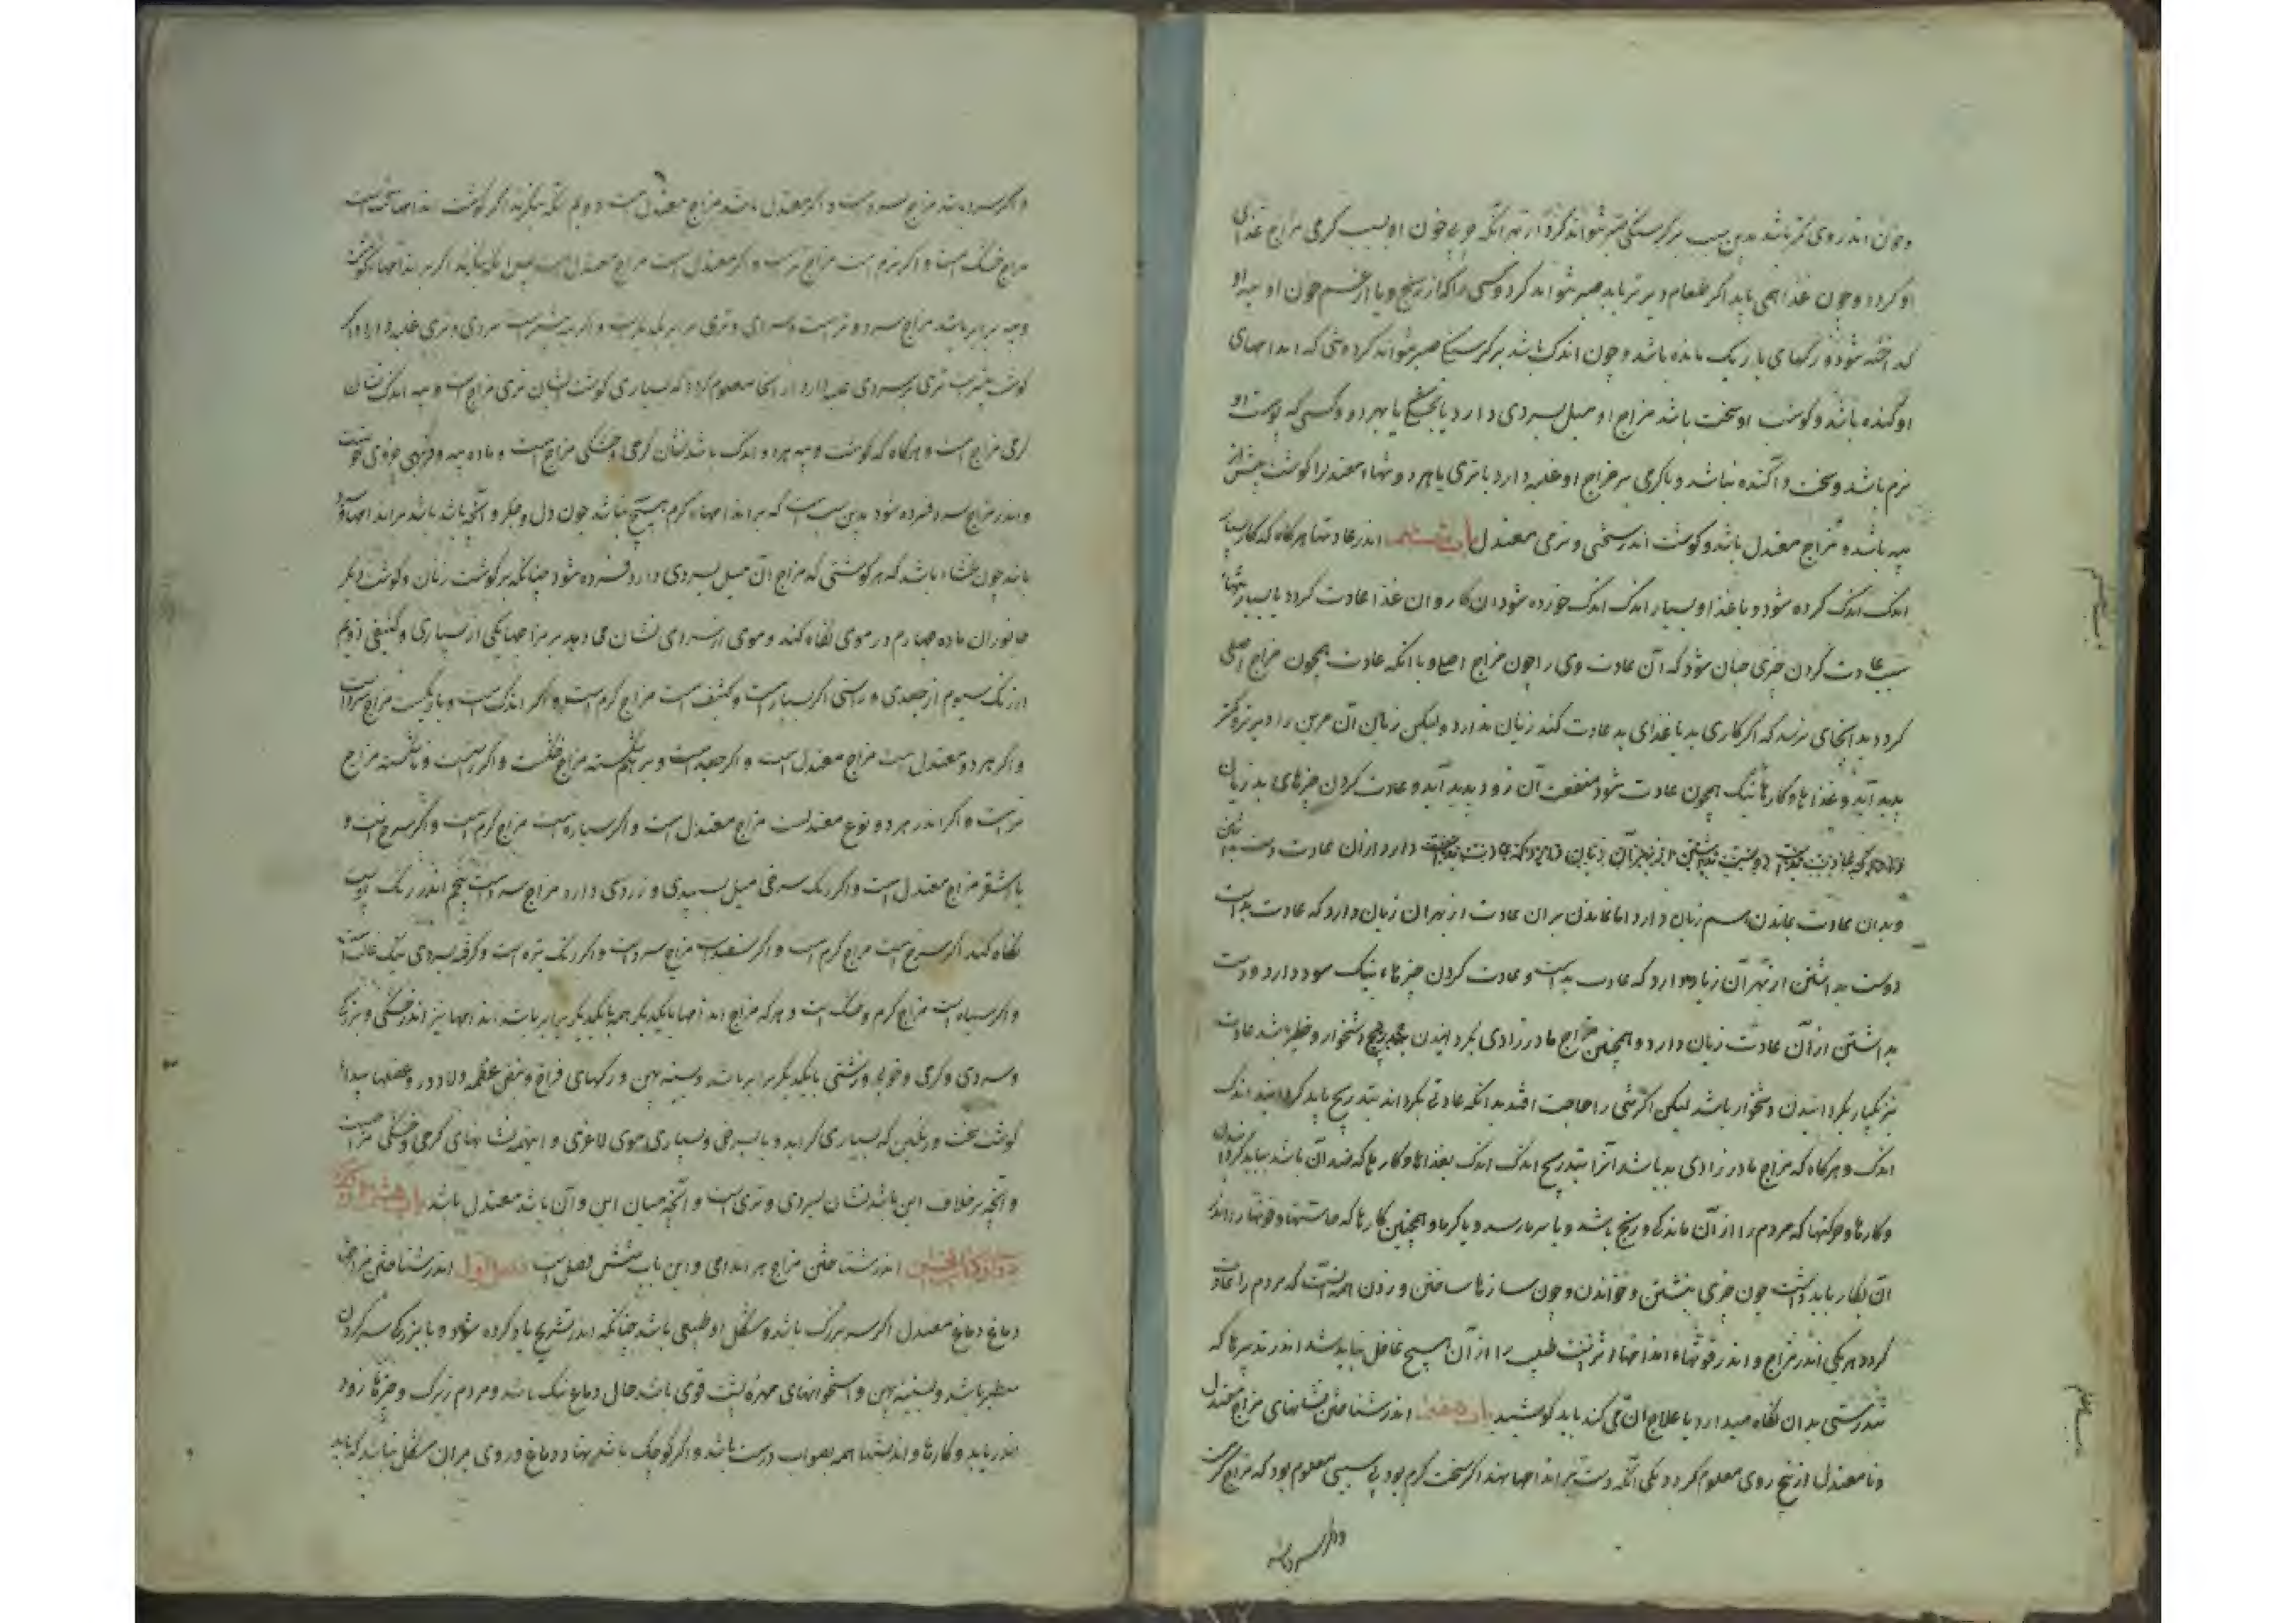 وخون اندر وی کمتر باشد بدین سبب بر گرسنگی صبر نتواند کرد از بهر آنکه خون او بسبب گرمی مزاج غذای
او کردد و چون غذا همی باید اکر طعام دیرتر یابد صبر نتواند کرد و کسی را که از رنج و یا از غم خون او پیه او
که اخته شود و رکهای باریک مانده باشد و چون اندک باشد بر کرسنکی صبر نتواند کرد و کسی که اندامهای
او آکنده باشد و کوشت او سخت باشد مزاج او میل بسردی دارد یا بخشکی یا بهر دو و کسی که پوست او
نرم باشد و سخت و آکنده نباشد و یا کرمی بر مزاج او غلبه دارد یا تری یا هر دو و تنهاء معتدل را کوشت بیش از
پیه باشد و مزاج معتدل باشد و کوشت اندر سختی و نرمی معتدل باب ششم اندر عادتها هرکاه که کار بسیار
اندک اندک کرده شود و یا غذاء بسیار اندک اندک خورده شود آن کار و آن غذا عادت کردد یا بسیار تنها
بسبب عادت کردن چیزی چنان شود که آن عادت وی را چون مزاج اصلی و با آنکه عادت همچون مزاج اصلی
کردد بدانجای نرسد که اکر کاری بد یا غذای بد عادت کند زیان ندارد ولیکن زیان آن مر این را دیرتر و کمتر
پدید آید و غذاها و کارهای نیک همچون عادت شود منفعت آن زود پدید آید و عادت کردن چیزهای بد زیان
دارد که عادت بدست دوست بداشتن از بهر آن زیان دارد که عادت بدست دارد و از آن عادت دست بداشتن
و بدان عادت بماندن هم زیان دارد اما ماندن بران عادت از بهر آن زیان دارد که عادت بد است
دوست بداشتن از بهر آن زیان دارد که عادت بدست و عادت کردن چیزهاء نیک سود دارد و دست
بداشتن از آن عادت زیان دارد و همچنین مزاج مادرزادی بکردانیدن رنج دشخوار و خطر باشد عادت
نیز یکبار بکردانیدن دشخوار باشد لیکن اکر کسی را حاجت افتد بدانکه عادتی بکرداند بتدریج باید کردانید اندک
اندک و هرکاه که مزاج مادرزادی بد باشد آنرا بتدریج اندک اندک بغذاها و کارها که ضد آن باشد بباید کردانیدن
و کارها و حرکتها که مردم را از آن ماندکی و رنج باشد و یا سرما رسد و یا کرما و همچنین کارها که حاستها و قوتها را اندر
آن بکار باید داشت چون چیزی نبشتن و خواندن و چون سازها ساختن و زدن اینهمه آنست که مردم را عادت
کردد هر یکی اندر مزاج و اندر قوتهاء اندامها اثریست طبیب را از آن هیچ غافل نباید شد اندر تدبیرها که
تندرستی بدان نکاه میدارد یا علاج آن می کند باید کوشید باب هفتم اندر شناختن نشانهای مزاج معتدل
و نامعتدل از پنج روی معلوم کردد یکی آنکه دست بر اندامها نهند اکر سخت کرم بود بی سببی معلوم بود که مزاج کرمست
واکر سرد باشد
واکر سرد باشد مزاج سردست و اکر معتدل باشد مزاج معتدل است دویم آنکه بنکرند اکر کوشت اندامها سخت است
مزاج خشک است و اکر نرم است مزاج ترست و اکر معتدل است مزاج معتدل است سیم آنکه بنکرند اکر بر اندامها کوشت
و پیه برابر باشد مزاج سرد و ترست و سردی و تری برابر یکدیکرست و اکر پیه بیشترست سردی بر تری غلبه دارد و اکر
کوشت بیشترست تری بر سردی غلبه دارد از اینجا معلوم کردد که بسیاری کوشت نشان تری مزاج است و پیه اندک نشان
کرمی مزاج است و هرکاه که کوشت و پیه هر دو اندک باشد نشان کرمی و خشکی مزاج است و ماده پیه و فربهی چربوی خونست
و اندر مزاج سرد فسرده شود بدین سبب است که بر اندامهاء کرم هیچ نباشد چون دل و جکر و آنچه باشد باشد بر اندامهاء سرد
باشد چون غشاء باشد که هر کوشتی که مزاج آن میل بسردی دارد فسرده شود چنانکه بر کوشت زنان و کوشت دیکر
جانوران ماده چهارم در موی نکاه کند و موی از سه روی نشان می دهد بر مزاجها یکی از بسیاری و کثیفی دویم
از رنک سیوم از جعدی و راستی اکر بسیارست و کثیف است مزاج کرم است و اکر اندک است و باریکست مزاج سرد است
و اکر هر دو معتدل است مزاج معتدل است و اکر جعد است و برهم شکسته مزاج خشکست و اکر راست و ناشکسته مزاج
ترست و اکر اندر هر دو نوع معتدلست مزاج معتدل است و اکر سیاه است مزاج کرم است و اکر سرخ است و
یا اشقر مزاج معتدل است و اکر رنک سرخی میل بسپیدی و زردی دارد مزاج سرد است پنجم اندر رنک پوست
نکاه کند اکر سرخ است مزاج کرم است و اکر سفید است مزاج سردست و اکر رنک تیره است و کرفته سردی نیک غالب است
و اکر سیاه است مزاج کرم و خشک است و هرکه مزاج اندامها با یکدیکر همه با یکدیکر برابر باشد اندامها نیز اندر خشکی و بزرکی
و سردی و کرمی و خوبی و زشتی با یکدیکر برابر باشد و سینه پهن و رکهای فراخ و نبض عظیم و لاد و در و عضلها پیدا
کوشت سخت و رنکین که بسیاری کراید و یا بسرخی و بسیاری موی لاغری و اینهمه نشانهای کرمی و خشکی مزاج است
و آنچه برخلاف این باشد نشان سردی و تری است و آنچه میان این و آن باشد معتدل باشد باب هشتم
اندر شناختن مزاج هر اندامی و این باب شش فصل است فصل اول اندر شناختن مزاج
دماغ دماغ معتدل اکر سر بزرک باشد و شکل او طبیعی باشد چنانکه اندر تشریح یاد کرده شود و با بزرکی سر کردن
سطبر باشد و سینه پهن و استخوانهای مهره پشت قوی باشد حال دماغ نیک باشد و مردم زیرک و چیزها زود
اندر یابد و کارها و اندیشها همه بصواب درست باشد و اکر کوچک باشد نهاد دماغ در وی بران شکل نباشد که باید